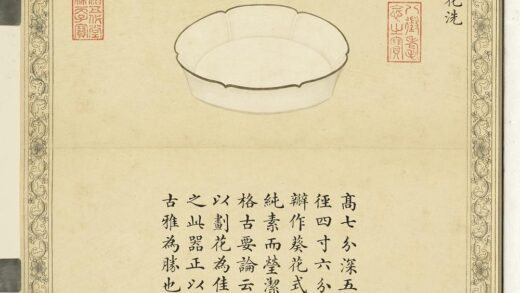 花洗
八徵耄念之寶
髙七分深五
徑四寸六分
瓣作葵花式
純素而瑩潔
格古要論云
以劃花為佳
之此器正以
古雅為勝也